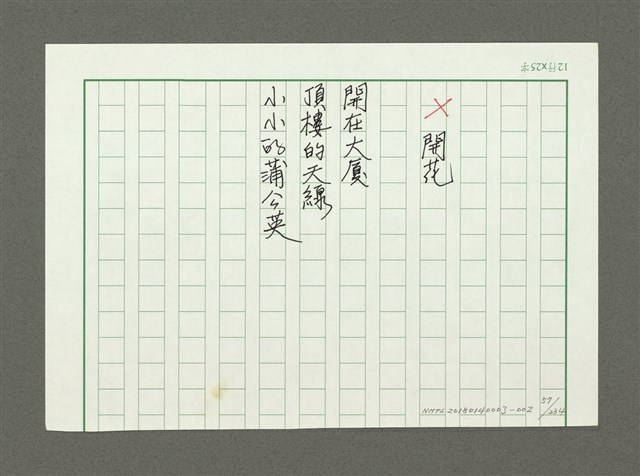 12行×25字
開花
開在大廈
頂樓的天線
小小的蒲公英
NMTL20180140003-002
57/234